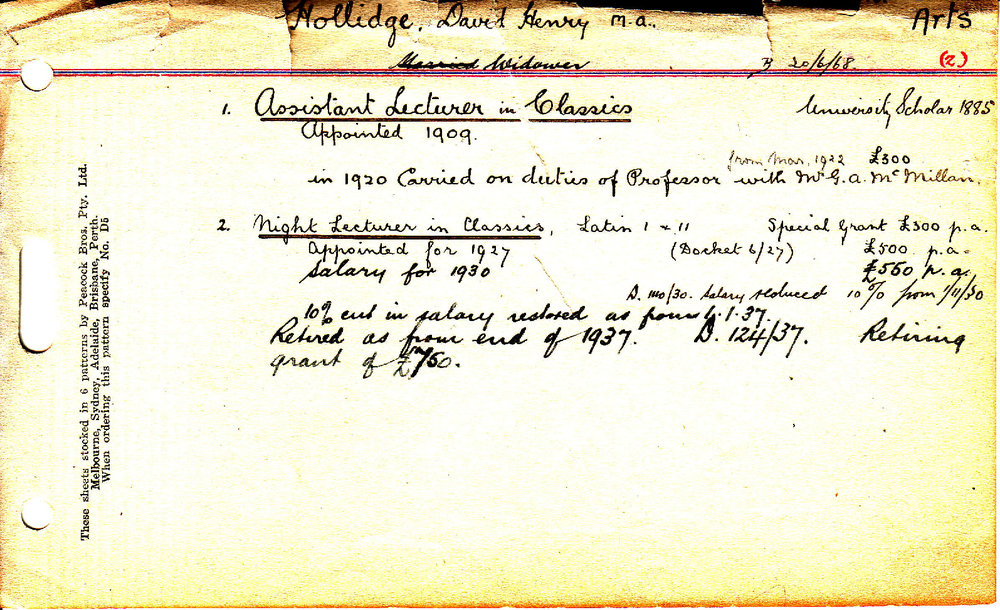 Hollidge, David Henry M.A. Arts
Married Widower B 20/6/68. (2)
1. Assistant Lecturer in Classics University Scholar 1885
Appointed 1909.
from Mar. 1922 £300
in 1920 Carried on duties of Professor with Mr G. A. McMillan.
2. Night Lecturer in Classics, Latin 1 & 11 Special Grant £300 p.a.
Appointed for 1927 (Docket 6/27) £500 p.a.
Salary for 1930 £550 p.a.
D. 140/30. Salary reduced 10% from 1/11/30
10% cut in salary restored as from 1.1.37.
Retired as from end of 1937. D. 124/37. Retiring
grant of £750.
These sheets stocked in 6 patterns by Peacock Bros. Pty. Ltd.
Melbourne, Sydney, Adelaide, Brisbane, Perth.
When ordering this pattern specify No. D5